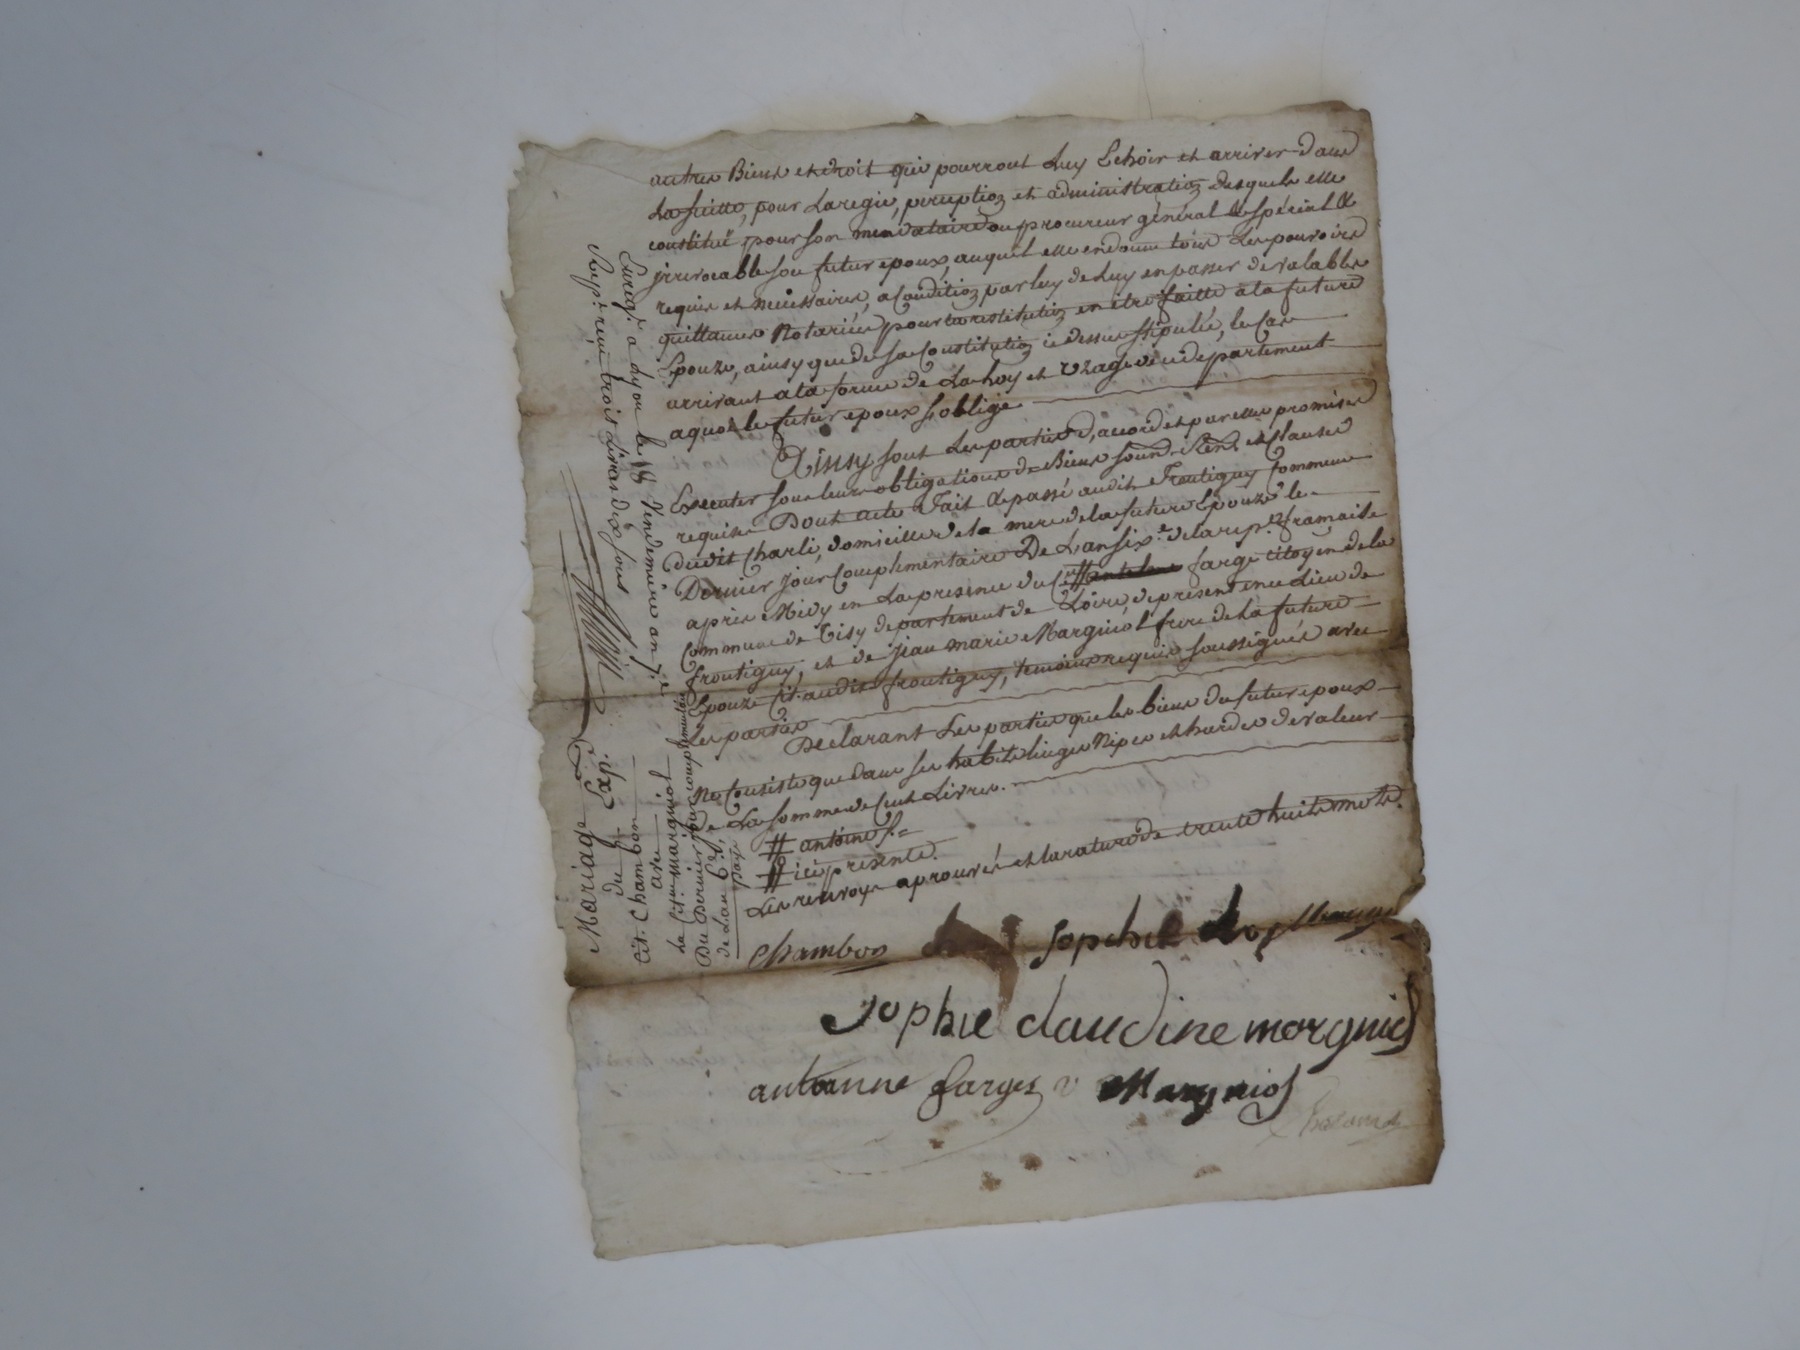 autres Biens et droit qui pourront Luy Echoir et arriver dans
La suitte, pour La regie, perception et administration desquels elle
constitue pour son mandataire ou procureur général & spécial &
jrrevocable son futur epoux, auquel elle en donne tous Les pouvoirs
requis et necessaires, a Condition par luy de Luy en passer de valables
quittances Notariées pour la restitution en être faitte a la future
Epouze, ainsy que de sa Constitution ci dessus stipulée, le Cas
arrivant a la forme de La Loy et Uzages du departement
a quoi le futur epoux s'oblige
Ainsy sont Les parties d'accord et par elles promis
Executer sous leurs obligations de Biens soum. Ren. et Clauses
requises Dont acte Fait & passé audit Frontigny Commune
dudit Charli, domicille de la mere de la future Epouze le
Dernier jour Complementaire De L'an six.e de la rep.e française
apres Midy en La presence du C.en farge citoyen de la
Commune de Tisy departement de Loire, de present en ce Lieu de
frontigny, et de jean marie Margniol frere de La future
Epouze Cit. audit frontigny, temoins requis soussignés avec
Les parties
Déclarant Les parties que les biens du futur epoux
Ne Consiste que dans ses habits linges Nipes et hardes de valeur
de La somme de Cent Livres.
# antoine f.
# ici présente.
Les renvoys aprouvés et la rature de trente huite mots.
Chambon Sophie
Sophie claudine morgniol
antoinne farges Margniol
Mariage
du
Cit. Chambon
avec
La Cit.ne Margniol
Du Dernier jour complementaire
de L'an 6.e
Exp.
paye
Enreg.é a Lyon le Vendemiaire an 7.e
Recu trois Livres dix sous